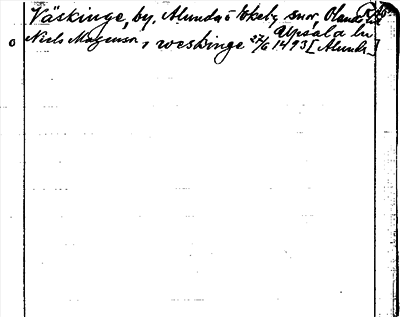 Väskinge, by, Alunda o Ekeby snr, Olands hd
Upsala ln
o Niels Magnusson, i weskinge 27/6 1493 [Alunda.]